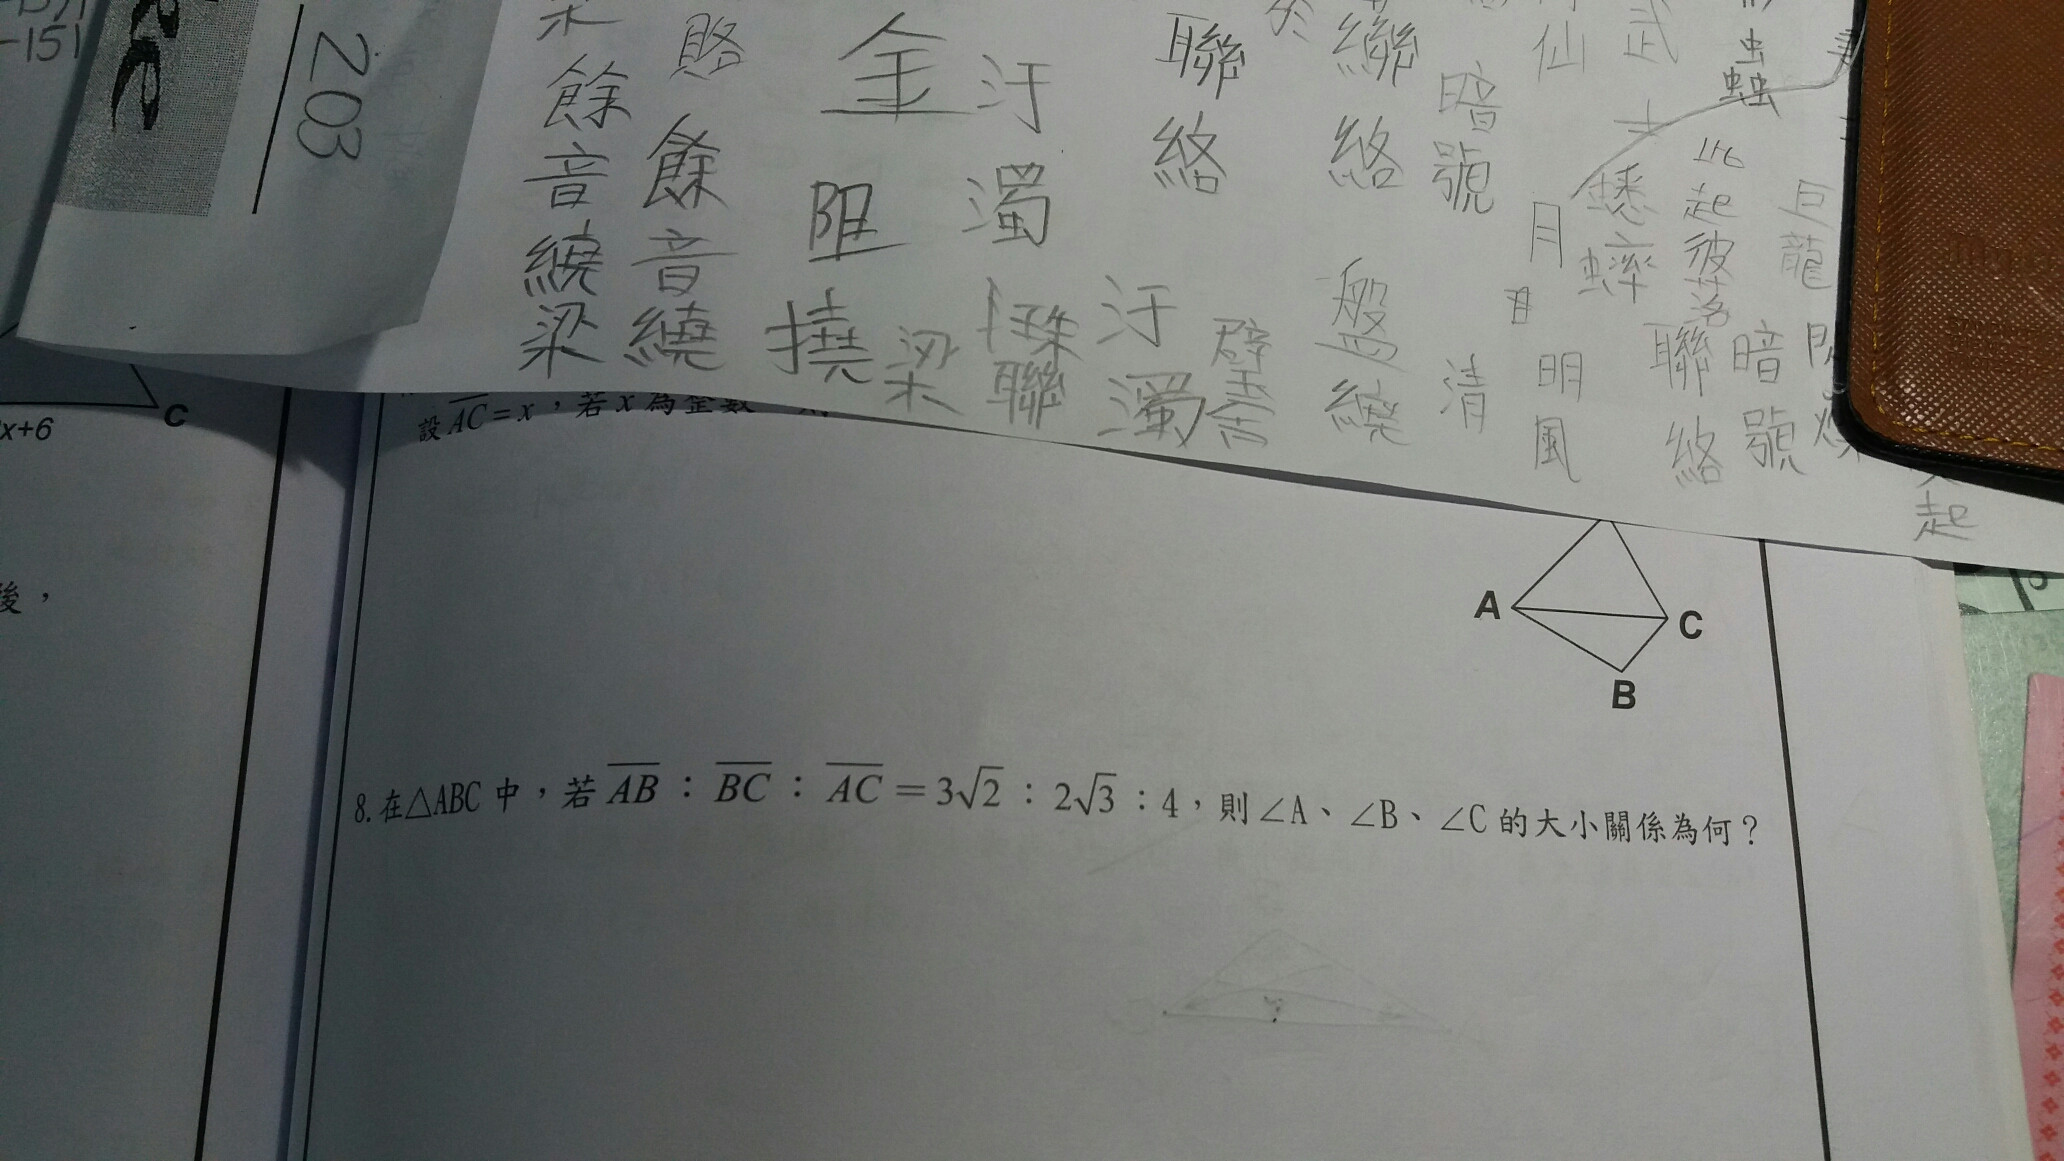 -151
203
餘音繞梁
賂
餘音繞
金
阻
撓
梁
汙濁
聯
汙濁
聯絡
壁
絡
盤繞
暗號
清
仙
月
明風
武士
蟋蟀
聯絡
蟲
此起彼落
暗號
巨龍
起
x+6
C
後，
設 AC = x，若 x 為整數
A
C
B
8. 在△ABC 中，若 AB：BC：AC = 3√2：2√3：4，則∠A、∠B、∠C 的大小關係為何？